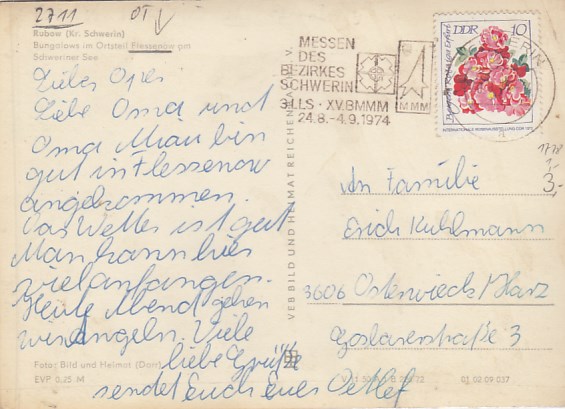 2711 OT
Rubow (Kr. Schwerin)
Bungalows im Ortsteil Flessenow am
Schweriner See
Liebe Oma und
Oma Mau bin
gut in Flessenow
angekommen.
Das Wetter ist gut
Man kann hier
viel anfangen.
Heute Abend gehen
wir angeln. Viele
liebe Grüße
sendet Euch Euer Detlef
Foto: Bild und Heimat (Dan)
EVP 0,25 M
VEB BILD UND HEIMAT REICHENBACH I. V.
MESSEN
DES
BEZIRKES
SCHWERIN
3.LLS · XV.BMMM
24.8.-4.9.1974
MMM
DDR 10
INTERNATIONALE ROSENAUSSTELLUNG DDR 1972
3,-
An Familie
Erich Kuhlmann
3606 Osterwieck/Harz
Goslarerstraße 3
01 02 09 037